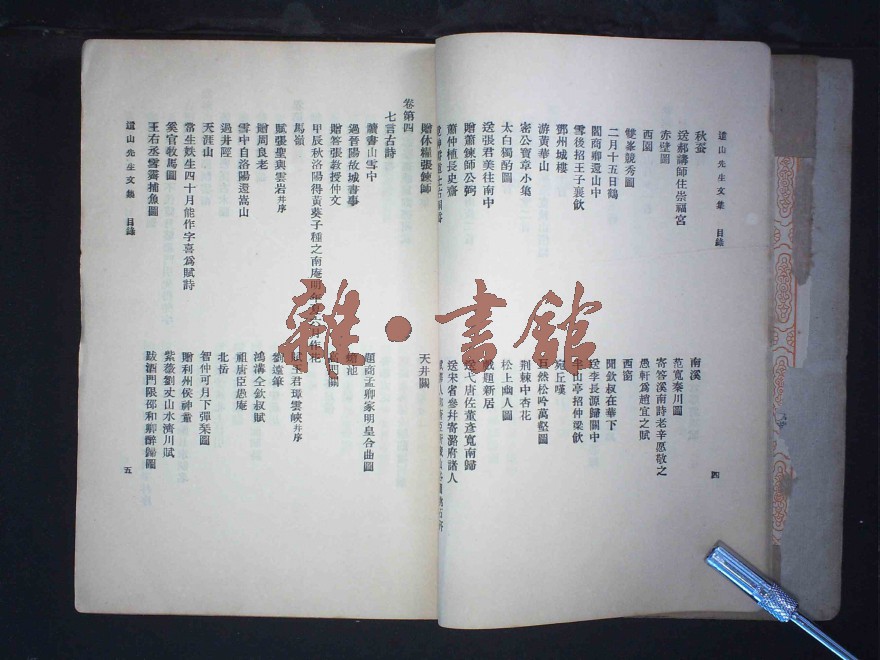 遺山先生文集 目錄
四
秋蠶
送郝講師住崇福宮
赤壁圖
西園
雙峯競秀圖
二月十五日鶴
閻商卿還山中
雪後招王子襄飲
鄧州城樓
游黃華山
密公寶章小集
太白獨酌圖
送張君美往南中
贈蕭鍊師公弼
蕭仲植長史齋
南溪
范寬秦川圖
寄答溪南詩老辛愿敬之
愚軒為趙宜之賦
西窗
聞欽叔在華下
送李長源歸關中
半山亭招仲梁飲
宛丘嘆
巨然松吟萬壑圖
荊棘中杏花
松上幽人圖
戲題新居
送弋唐佐董彥寬南歸
送宋省參并寄潞府諸人
贈休糧張鍊師
天井關
卷第四
七言古詩
讀書山雪中
過晉陽故城書事
贈答張教授仲文
甲辰秋洛陽得黃葵子種之南庵明年夏六月作花
馬嶺
賦張聖與雲岩并序
贈周良老
雪中自洛陽還嵩山
過井陘
天涯山
常生妷生四十月能作字喜為賦詩
奚官牧馬圖
王右丞雪霽捕魚圖
題商孟卿家明皇合曲圖
賦王君璋雲峽并序
劉遠筆
鴻溝仝欽叔賦
祖唐臣愚庵
北岳
智仲可月下彈琹圖
贈利州侯神童
紫薇劉丈山水濟川賦
跋酒門限邵和卿醉歸圖
遺山先生文集 目錄
五
雜·書館